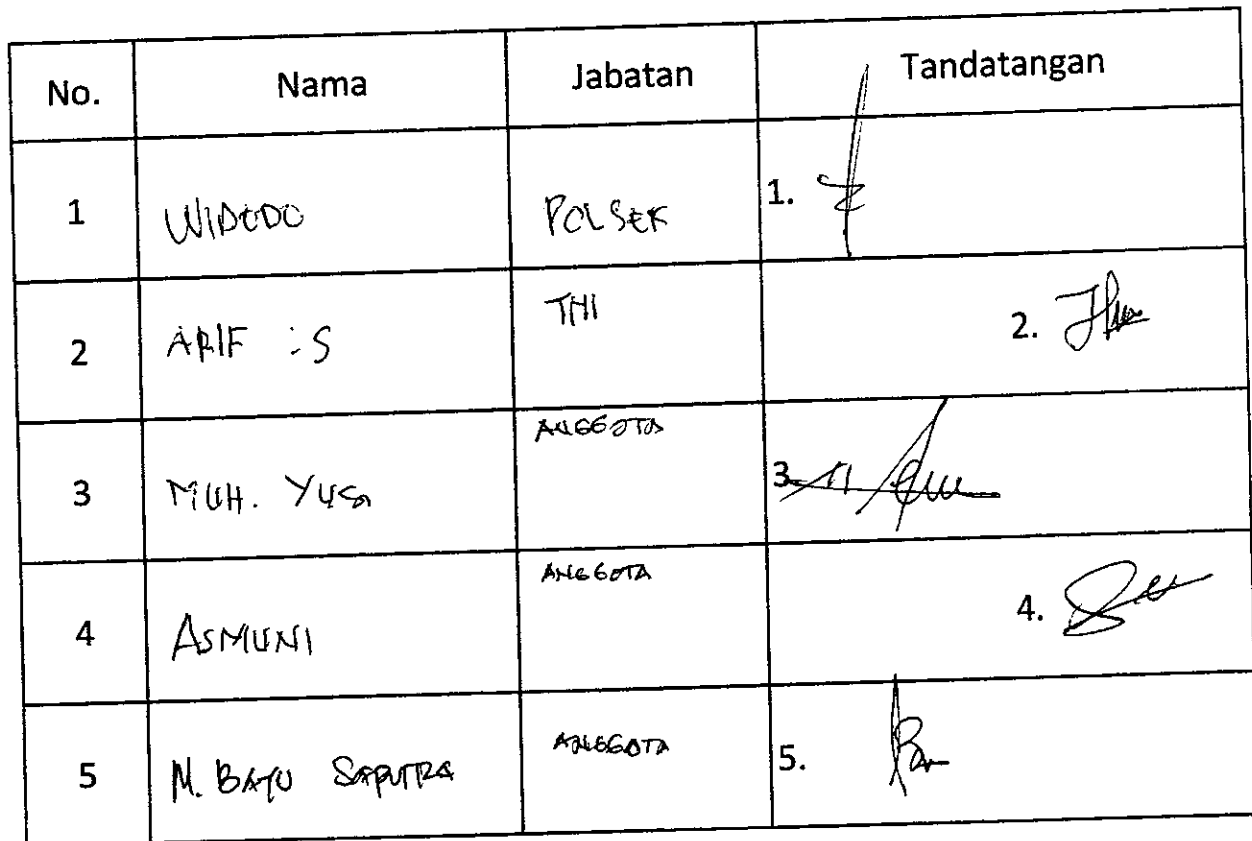 No. Nama Jabatan Tandatangan
1 WIDODO POLSEK 1.
2 ARIF : S TNI 2.
3 MUH. YUSA ANGGOTA 3.
4 ASMUNI ANGGOTA 4.
5 M. BAYU SAPUTRA ANGGOTA 5.